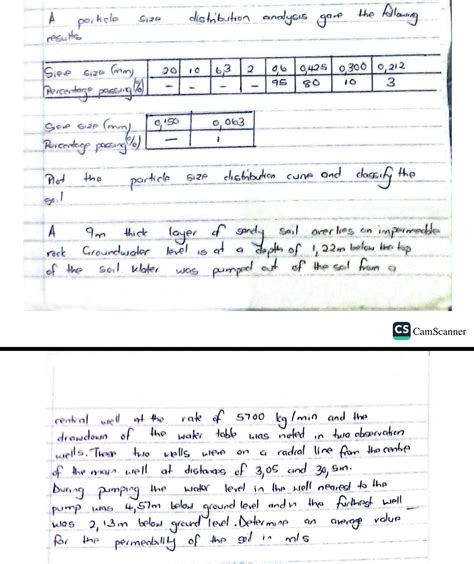 A particle size distribution analysis gave the following
results
Sieve size (mm) 20 10 6,3 2 0,6 0,425 0,300 0,212
Percentage passing (%) - - - - 95 80 10 3
Sieve size (mm) 0,150 0,063
Percentage passing (%) - 1
Plot the particle size distribution curve and classify the
soil
A 9m thick layer of sandy soil overlies an impermeable
rock Groundwater level is at a depth of 1,22m below the top
of the soil Water was pumped out of the soil from a
CS CamScanner
central well at the rate of 5700 kg/min and the
drawdown of the water table was noted in two observation
wells. These two wells were on a radial line from the centre
of the main well at distances of 3,05 and 30,5m.
During pumping the water level in the well nearest to the
pump was 4,57m below ground level and in the furthest well
was 2,13m below ground level. Determine an average value
for the permeability of the soil in m/s